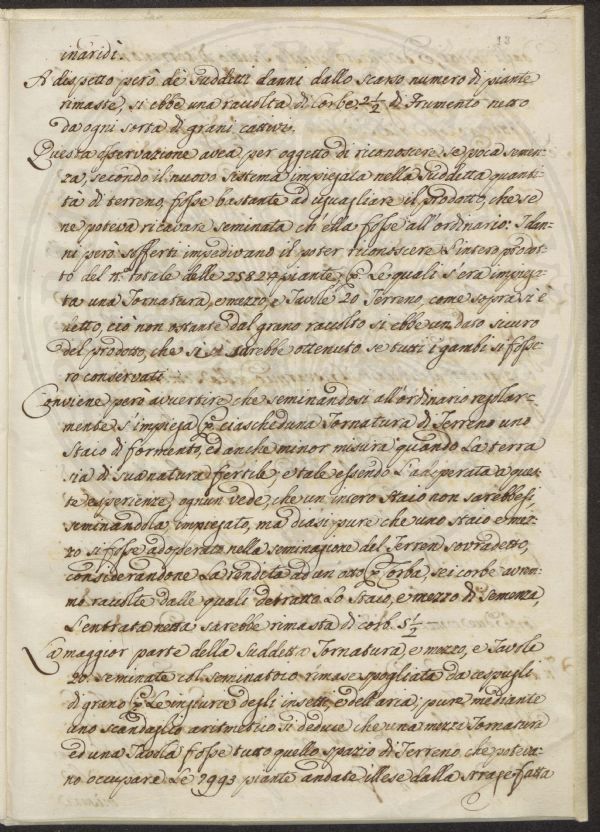 18
inaridì.
A dispetto però de' Suddetti danni dallo scarso numero di piante
rimaste, si ebbe una racolta di Corbe 2½ di Frumento netto
da ogni sorta di grani cattivi.
Questa osservazione avea per oggetto di riconoscere se poca semen-
za, secondo il nuovo sistema impiegata nella suddetta quanti-
tà di terreno, fosse bastante ad uguagliare il prodotto, che se
ne poteva ricavare seminata ch'ella fosse all'ordinario: I dan-
ni però sofferti impedivano il poter riconoscere l'intero prodot-
to del n.º totale delle 25827 piante, p. le quali s'era impiega-
ta una Tornatura, e mezzo, e Tavole 20 Terreno, come sopra si è
detto, ciò non ostante dal grano racolto si ebbe un dato sicuro
del prodotto, che si sarebbe ottenuto se tutti i gambi si fosse-
ro conservati.
Conviene però avvertire che seminandosi all'ordinario regolar-
mente s'impiega p. ciascheduna Tornatura di Terreno uno
Staio di formento, ed anche minor misura quando la terra
sia di sua natura fertile, e tale essendo l'adoperata a ques-
te esperienze, ognun vede, che un intero Staio non sarebbesi,
seminandola, impiegato, ma diasi pure che uno staio e mez-
zo si fosse adoperato nella seminagione del Terren sovradetto,
considerandone la rendita ad un otto p. Corba, sei corbe avrem-
mo racolte dalle quali detratto lo Staio, e mezzo di Semenza,
l'entrata netta sarebbe rimasta di corb. 5½
La maggior parte della Suddetta Tornatura, e mezzo, e Tavole
20. seminate col seminatoio rimase spogliata da cespugli
di grano p. le ingiurie degli insetti, e dell'aria; pure mediante
uno scandaglio aritmetico si deduce che una mezza Tornatura
ed una Tavola fosse tutto quello spazio di Terreno, che poteva-
no occupare le 7993 piante andate illese dalla strage fatta